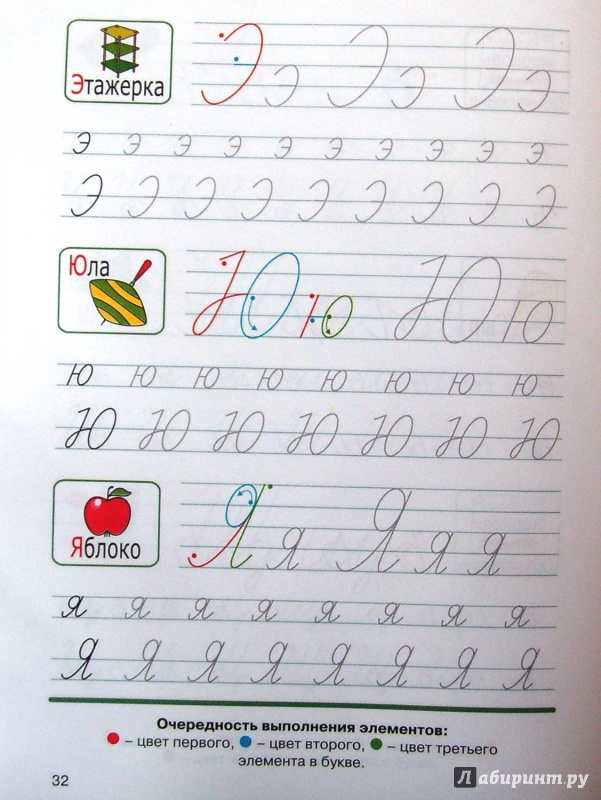 Этажерка
Ээ Ээ Ээ
э э э э э э э э э э
Э Э Э Э Э Э Э Э Э
Юла
Юю Юю
ю ю ю ю ю ю ю ю
Ю Ю Ю Ю Ю Ю Ю
Яблоко
Яя Яя я
я я я я я я я я
Я Я Я Я Я Я Я Я
Очередность выполнения элементов:
– цвет первого, – цвет второго, – цвет третьего
элемента в букве.
32
Лабиринт.ру